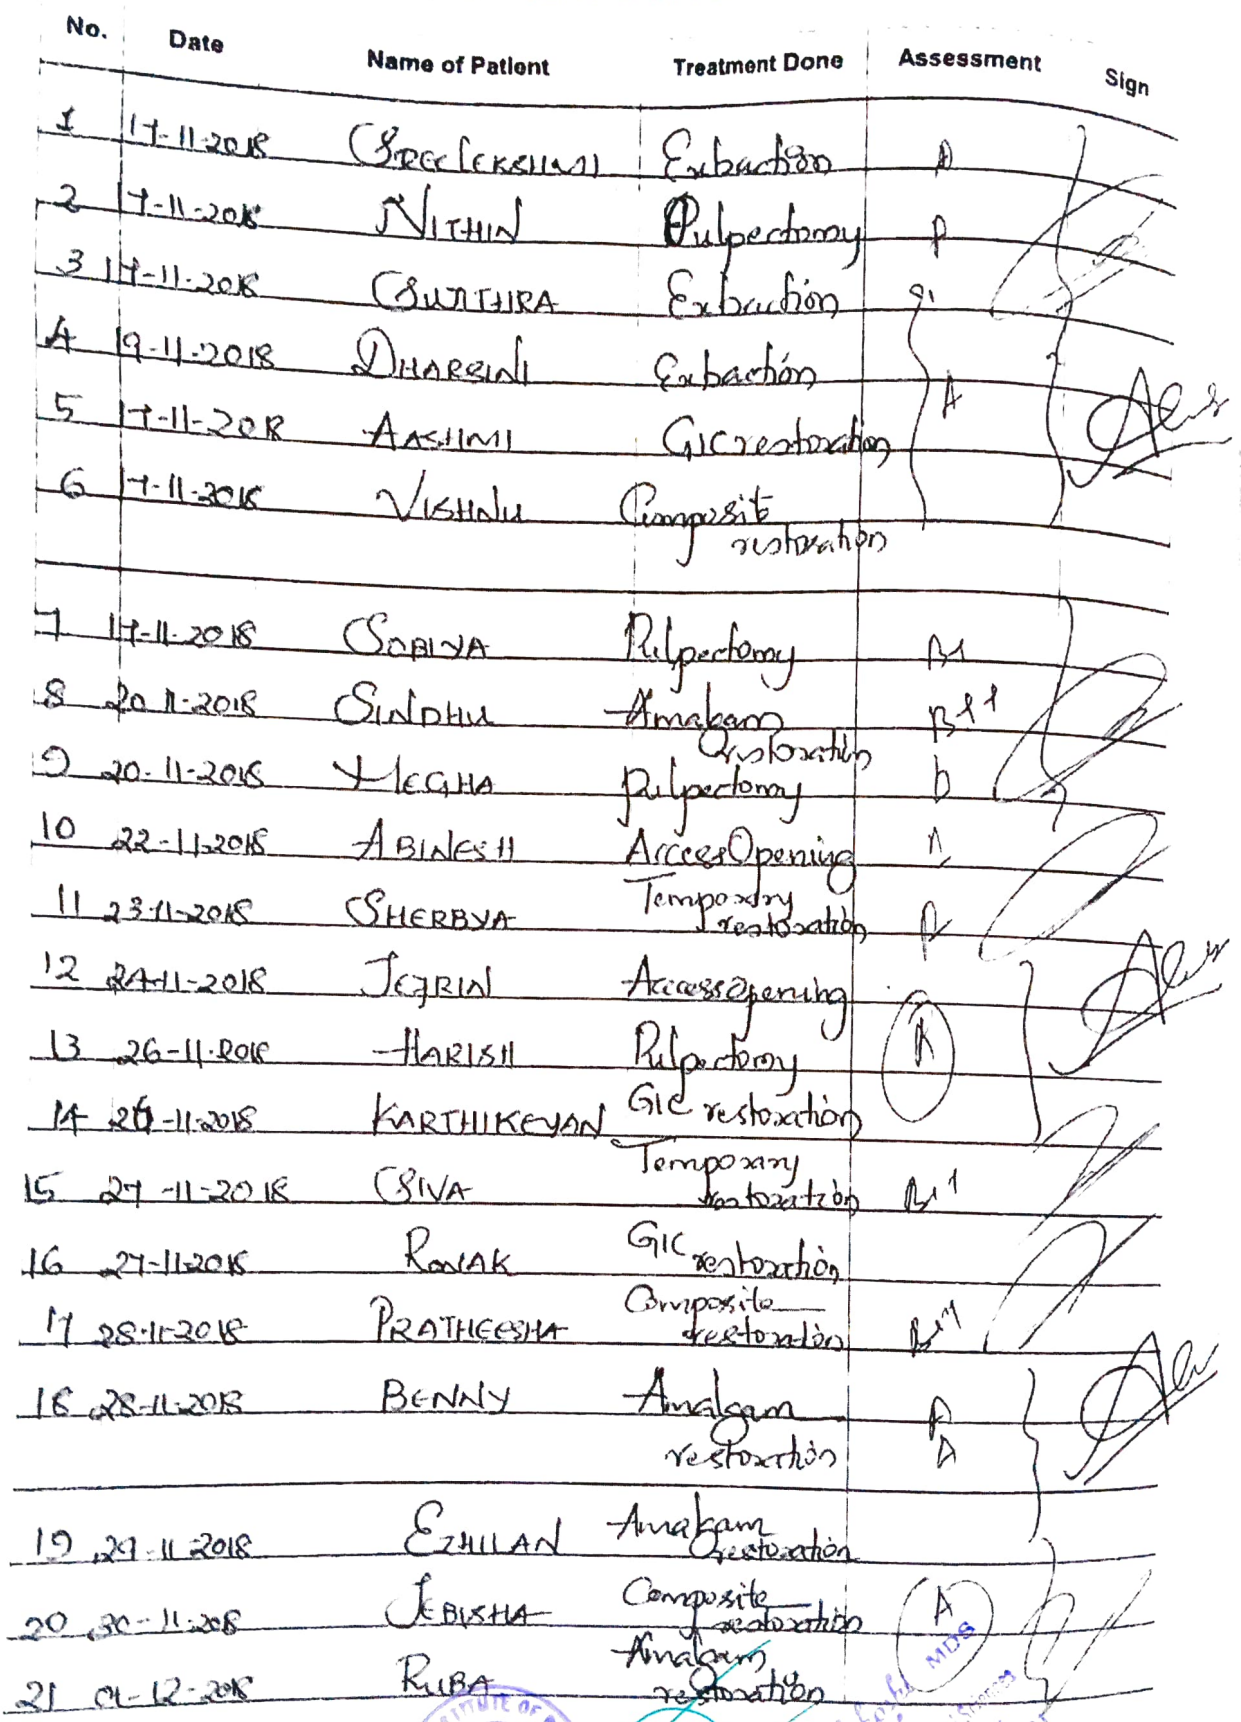 No. Date Name of Patient Treatment Done Assessment Sign
1 17-11-2018 SREELEKSHMI Extraction A
2 17-11-2018 NITHIN Pulpectomy A
3 17-11-2018 SUJITHRA Extraction
4 19-11-2018 DHARSINI Extraction
5 17-11-2018 AASHMI GIC restoration A
6 17-11-2018 VISHNU Composite
restoration
7 17-11-2018 SOBIYA Pulpectomy
8 20-11-2018 SINDHU Amalgam B++
restoration
9 20-11-2018 MEGHA pulpectomy
10 22-11-2018 ABINESH Access Opening A
11 23-11-2018 SHERBYA Temporary
restoration A
12 24-11-2018 JEFRIN Access Opening
13 26-11-2018 HARISH Pulpectomy A
14 26-11-2018 KARTHIKEYAN GIC restoration
15 27-11-2018 SIVA Temporary
restoration B++
16 27-11-2018 RONAK GIC
restoration
17 28-11-2018 PRATHEESHA Composite
restoration B++
18 28-11-2018 BENNY Amalgam A
restoration A
19 29-11-2018 EZHILAN Amalgam
restoration
20 30-11-2018 JEBISHA Composite
restoration A
MDS
21 01-12-2018 RUBA Amalgam
restoration
Sciences